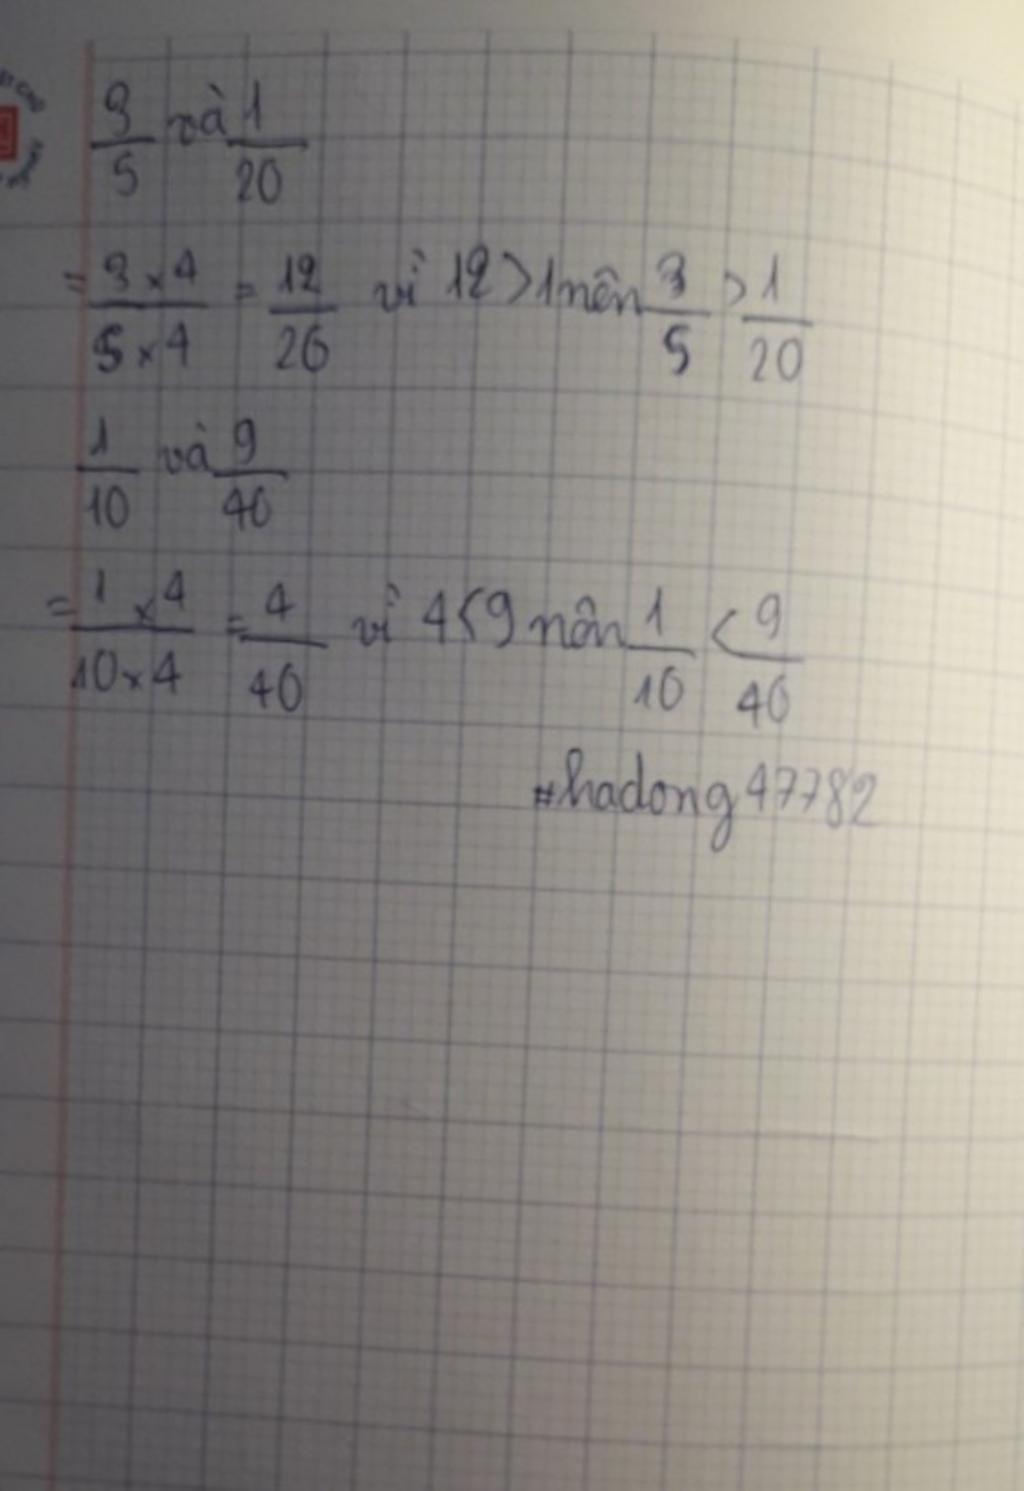 3/5 và 1/20
= 3 x 4/5 x 4 = 12/20 vì 12 > 1 nên 3/5 > 1/20
1/10 và 9/40
= 1 x 4/10 x 4 = 4/40 vì 4 < 9 nên 1/10 < 9/40
#hadong47782